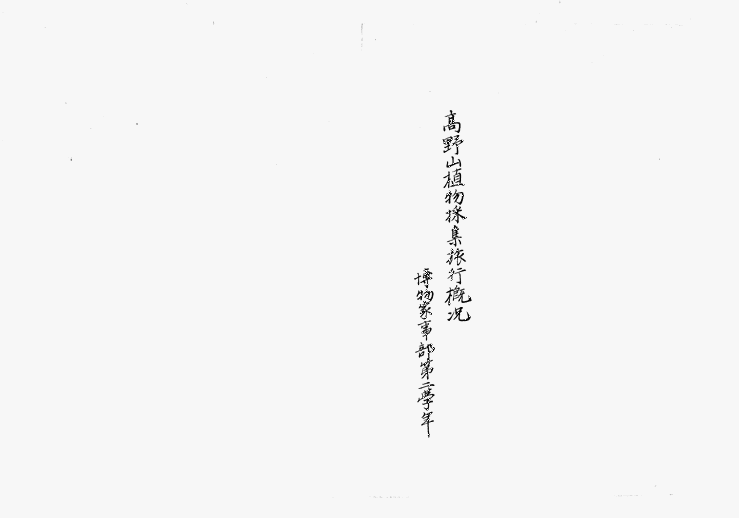 高野山植物採集旅行概况
博物家事部第二學年